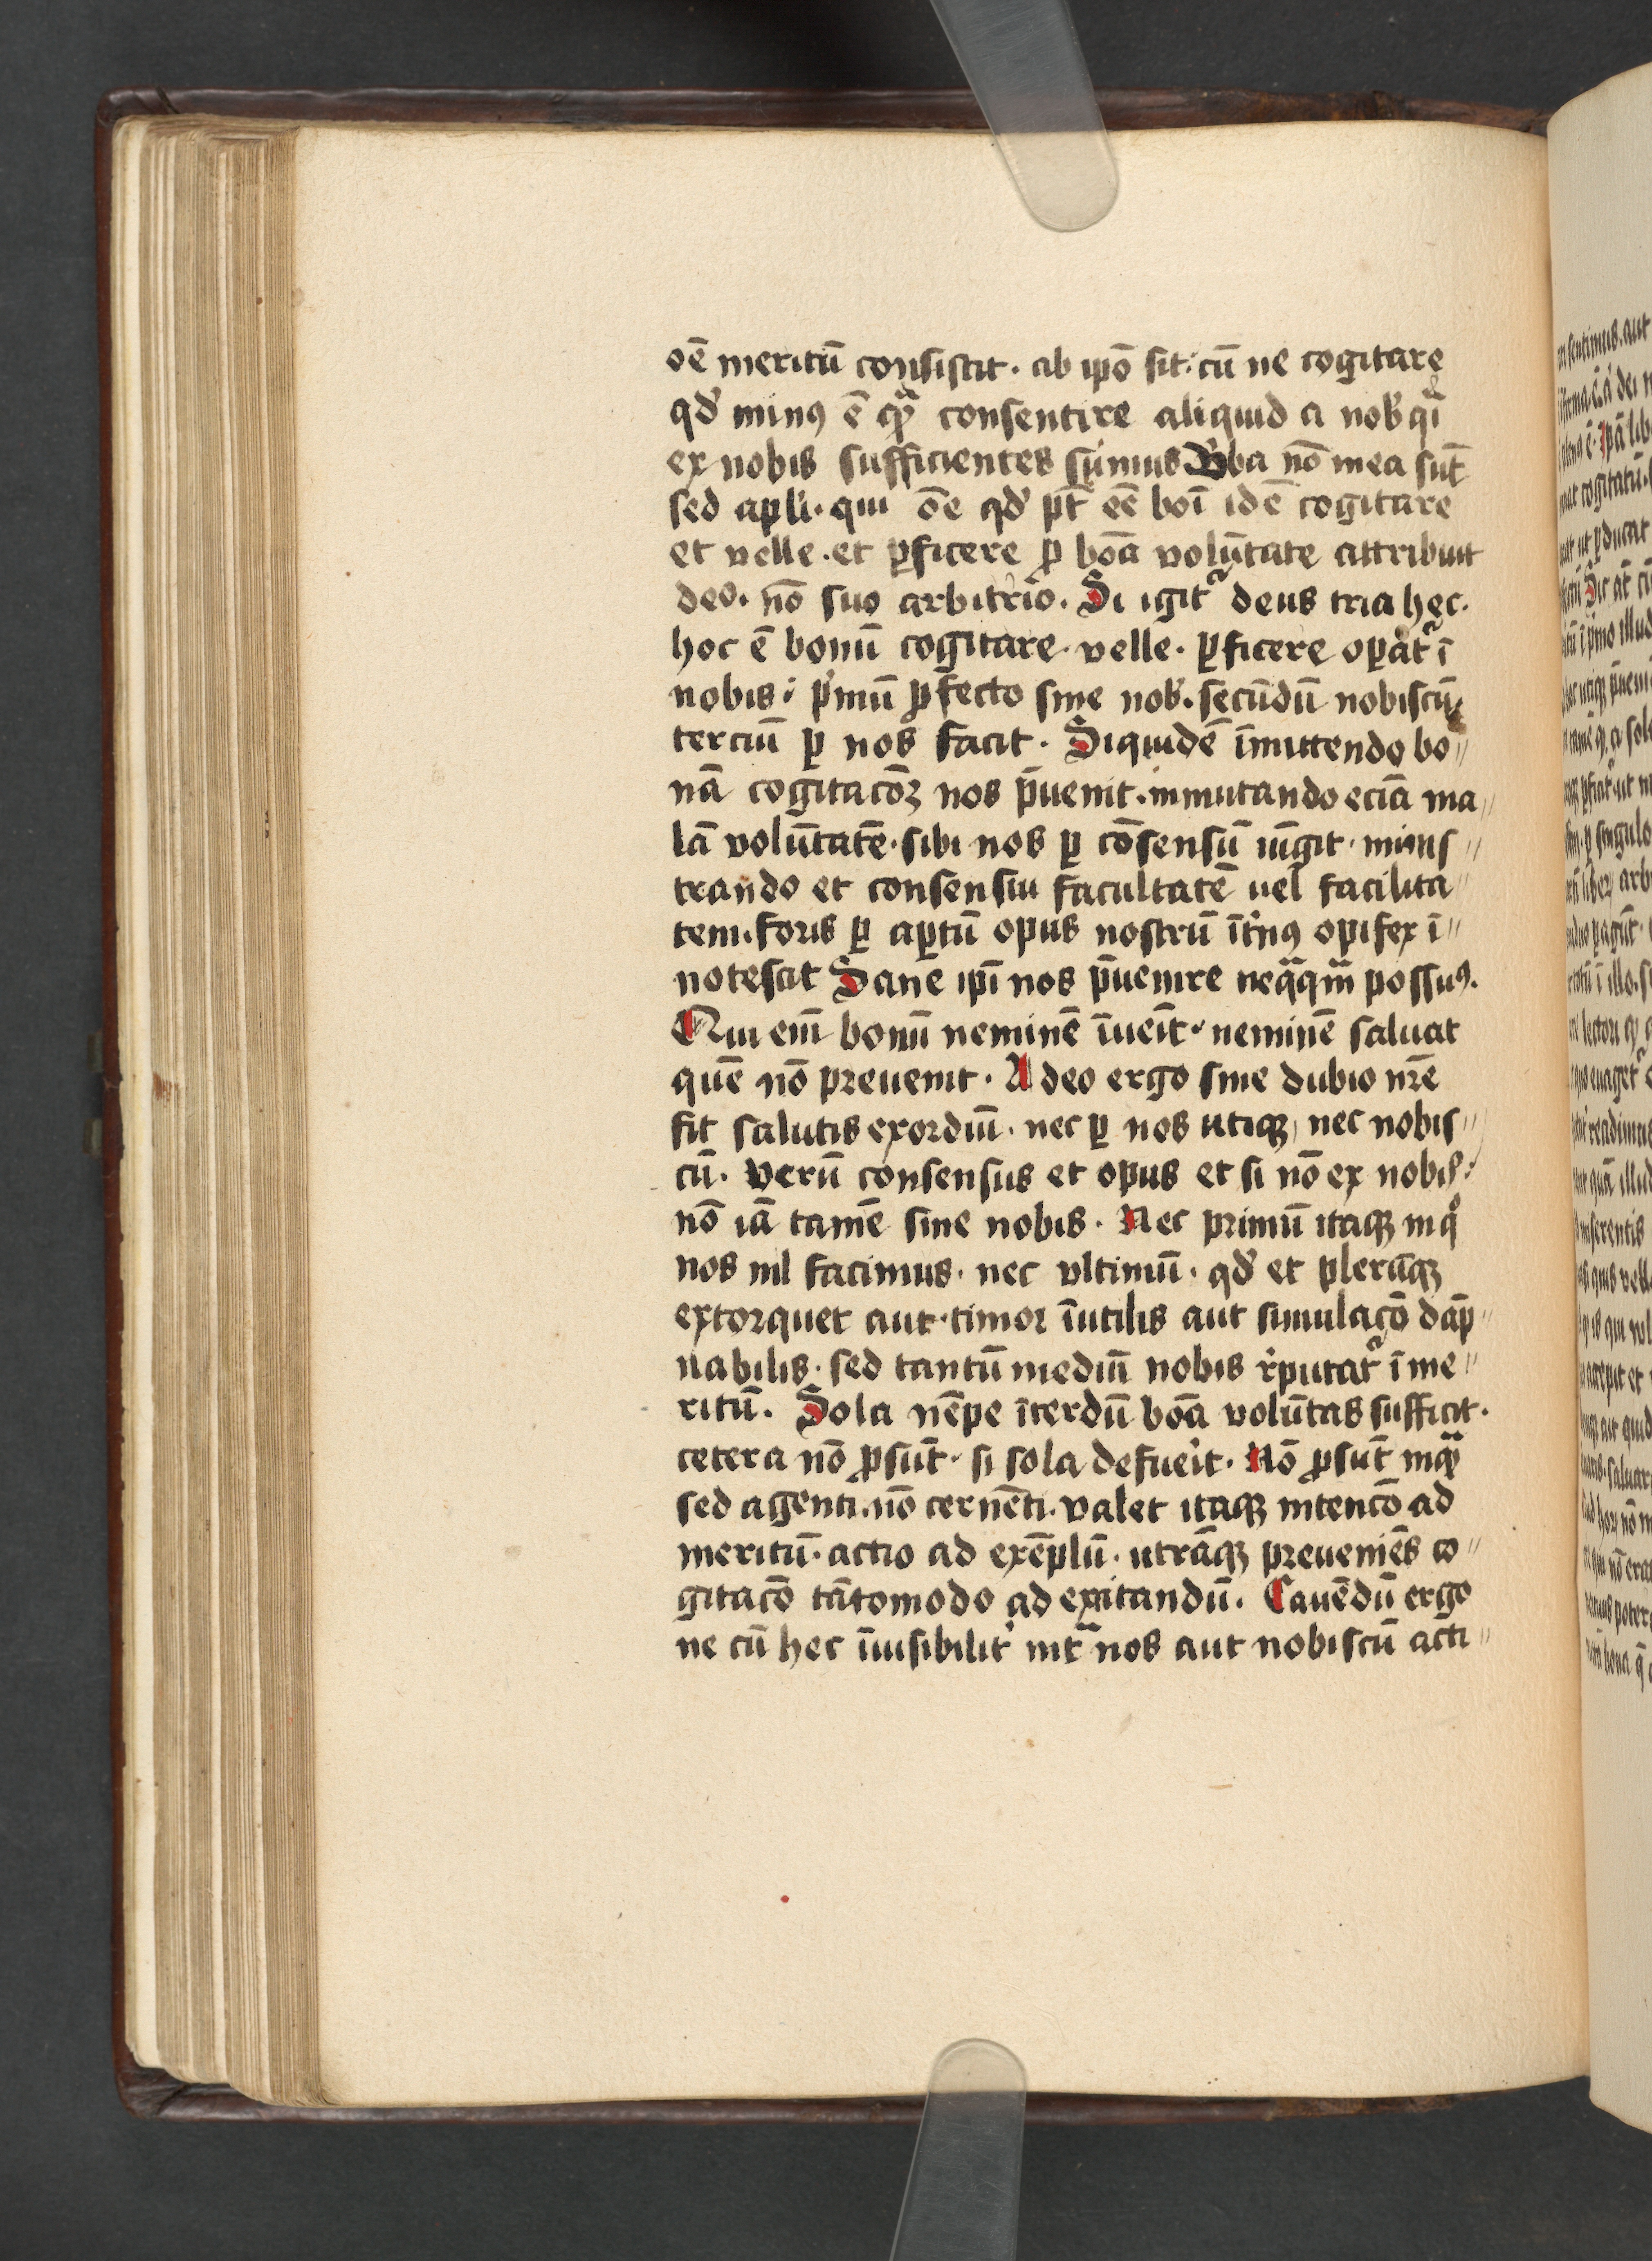 oē meritū consistit · ab ipō sit · cū ne cogitare
qd' minꝰ ē qᷓ consentire aliquid a nob' qⁱ
ex nobis sufficientes sumus Vba nō mea sūt
sed apli · qui ōe qd' pt̄ eē boī idē cogitare
et velle · et ꝑficere ꝓ bōa volūtate attribuit
deo · nō suo arbitrio · Si igit᷑ deus tria hec ·
hoc ē bonū cogitare · velle · ꝑficere oꝑat᷑ ī
nobis · pⁱmū ꝓfecto sine nob' · secūdū nobiscū
terciū ꝑ nos facit · Siquidē īmittendo bo〃
nā cogitacōꝫ nos p̄uenit · inmutando eciā ma〃
lā volūtatē · sibi nos ꝑ cōsensū iūgit · minis〃
trando et consensiu facultatē uel facilita〃
tem · foris ꝑ aꝑtū opus nostrū īt'nꝰ opifex ī〃
notescit Sane ipī nos p̄uenire neqᷓqᷓm possuꝰ ·
Qui enī bonū neminē īueīt · neminē saluat
quē nō preuenit · A deo ergo sine dubio nrē
fit salutis exordiū · nec ꝑ nos utiqꝫ nec nobis〃
cū · Verū consensus et opus et si nō ex nobis ·
nō iā tamē sine nobis · Nec primū itaqꝫ in qͦ
nos nil facimus · nec vltimū · qd' et plerūqꝫ
extorquet aut timor īutilis aut simulacō dāp〃
nabilis · sed tantū mediū nobis r'putat᷑ ī me〃
ritū · Sola nēpe īterdū bōa volūtas sufficit ·
cetera nō ꝓsūt · si sola defueīt · Nō ꝓsūt inqᷓ
sed agenti · nō cernēti · valet itaqꝫ intencō ad
meritū · actio ad exēplū · utrāqꝫ preueniēs co〃
gitacō tātomodo ad excitandū · Cauēdū ergo
ne cū hec īuisibilit' intᷓ nos aut nobiscū acti〃